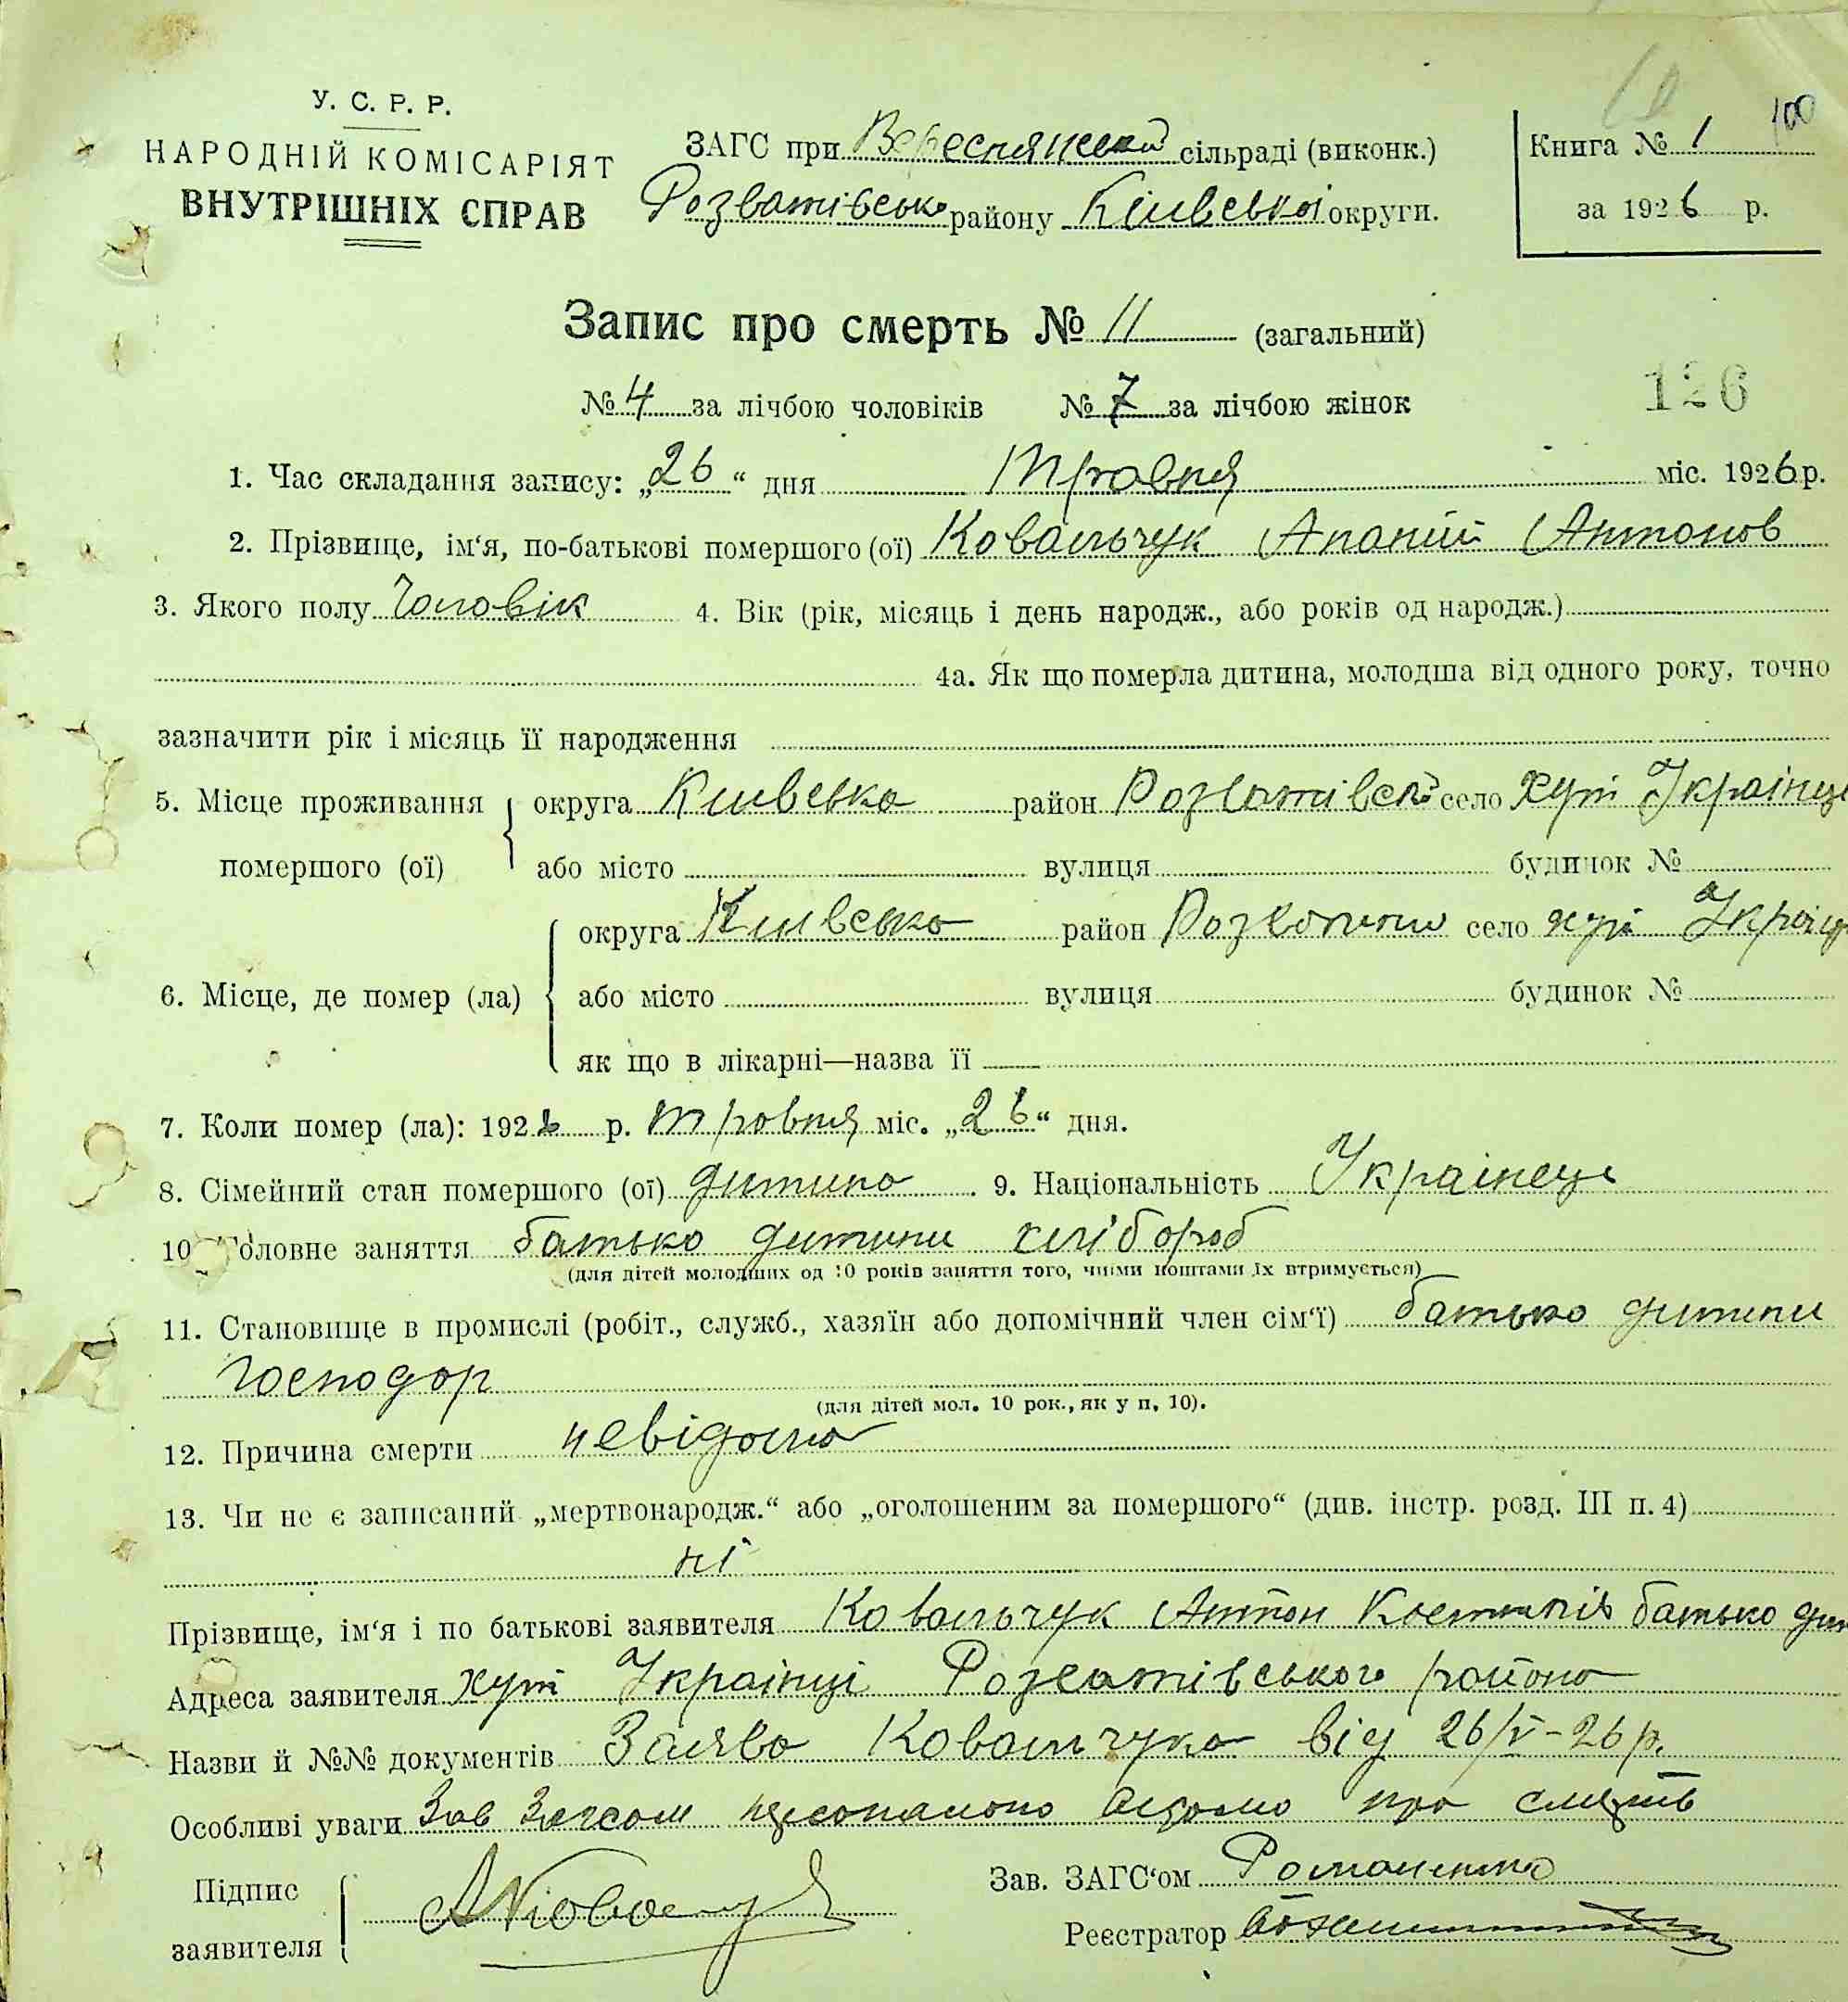 100
У. С. Р. Р.
НАРОДНІЙ КОМІСАРІЯТ
ВНУТРІШНІХ СПРАВ
ЗАГС при Вереснянській сільраді (виконк.)
Розватівсько району Київської округи.
Книга № 1
за 1926 р.
Запис про смерть № 11 (загальний)
№ 4 за лічбою чоловіків № 7 за лічбою жінок
126
1. Час складання запису: „26“ дня Травня міс. 1926 р.
2. Прізвище, ім‘я, по-батькові помершого (ої) Ковальчук Ананій Антонов
3. Якого полу Чоловік 4. Вік (рік, місяць і день народж., або років од народж.)
4а. Як що померла дитина, молодша від одного року, точно
зазначити рік і місяць її народження
5. Місце проживання округа Київська район Розватівськ село Хут Українці
помершого (ої) або місто вулиця будинок №
округа Київська район село хут Українц
6. Місце, де помер (ла) або місто вулиця будинок №
як що в лікарні—назва її
7. Коли помер (ла): 1926 р. травня міс. „26“ дня.
8. Сімейний стан помершого (ої) дитина 9. Національність Українець
10. Головне заняття батько дитини хлібороб
(для дітей молодших од 10 років заняття того, чиїми коштами їх втримується)
11. Становище в промислі (робіт., служб., хазяїн або допомічний член сім‘ї) батько дитини
господар
(для дітей мол. 10 рок., як у п. 10).
12. Причина смерти невідома
13. Чи не є записаний „мертвонародж.“ або „оголошеним за помершого“ (див. інстр. розд. III п. 4)
ні
Прізвище, ім‘я і по батькові заявителя Ковальчук Антон батько дит
Адреса заявителя хут Українці Розватівського району
Назви й №№ документів Заява Ковальчука від 26/V-26 р.
Особливі уваги Зав Загсом про смерть
Підпис
заявителя
Зав. ЗАГС‘ом Романенко
Реєстратор